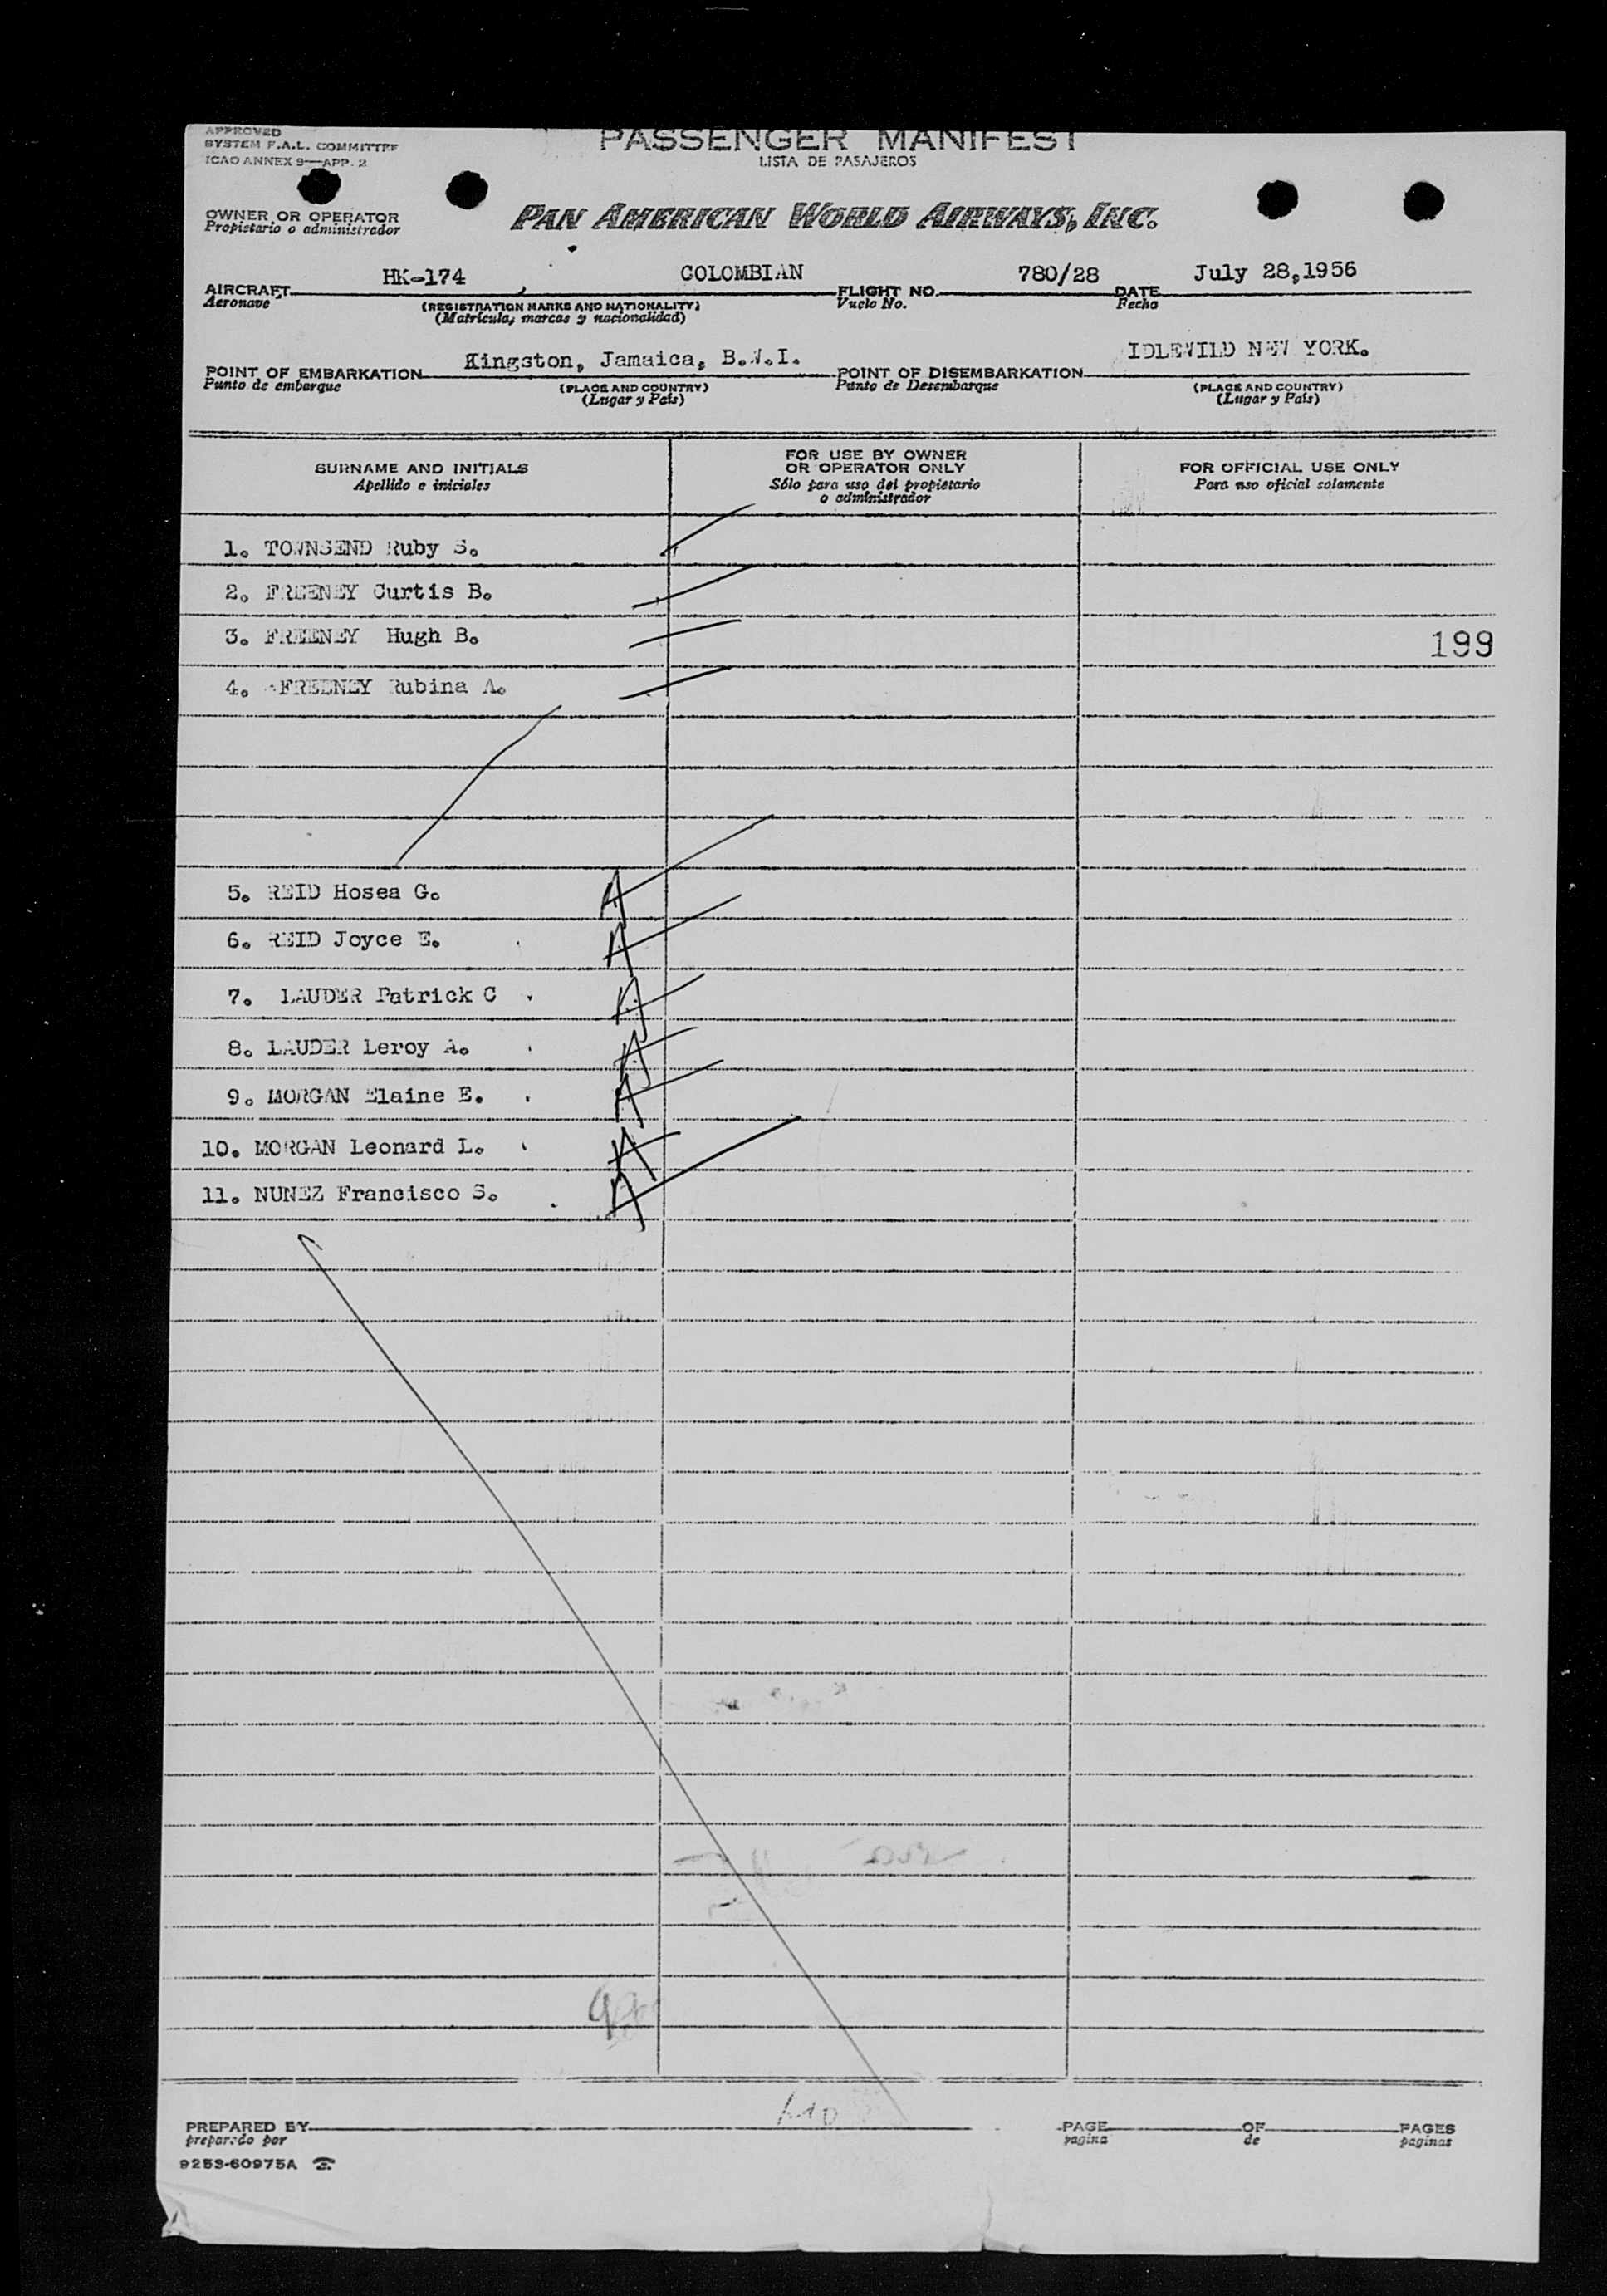 APPROVED
SYSTEM F.A.L. COMMITTEE
ICAO ANNEX 9—APP. 2
PASSENGER MANIFEST
LISTA DE PASAJEROS
OWNER OR OPERATOR
Propietario o administrador
PAN AMERICAN WORLD AIRWAYS, INC.
AIRCRAFT HK-174 COLOMBIAN FLIGHT NO. 780/28 DATE July 28,1956
Aeronave (REGISTRATION MARKS AND NATIONALITY) Vuelo No. Fecha
(Matrícula, marcas y nacionalidad)
POINT OF EMBARKATION Kingston, Jamaica, B.W.I. POINT OF DISEMBARKATION IDLEWILD NEW YORK.
Punto de embarque (PLACE AND COUNTRY) Punto de Desembarque (PLACE AND COUNTRY)
(Lugar y País) (Lugar y País)
SURNAME AND INITIALS
Apellido e iniciales
FOR USE BY OWNER
OR OPERATOR ONLY
Sólo para uso del propietario
o administrador
FOR OFFICIAL USE ONLY
Para uso oficial solamente
1. TOWNSEND Ruby S.
2. FREENEY Curtis B.
3. FREENEY Hugh B.
199
4. FREENEY Rubina A.
5. REID Hosea G. A
6. REID Joyce E. A
7. LAUDER Patrick C A
8. LAUDER Leroy A. A
9. MORGAN Elaine E. A
10. MORGAN Leonard L. A
11. NUNEZ Francisco S. A
PREPARED BY PAGE OF PAGES
preparado por pagina de paginas
9253-60975A